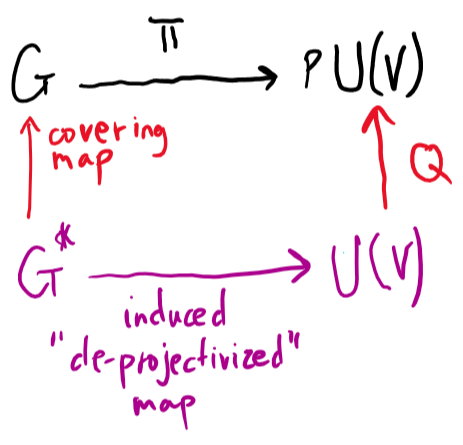 π
G PU(V)
covering
map
Q
G* U(V)
induced
"de-projectivized"
map